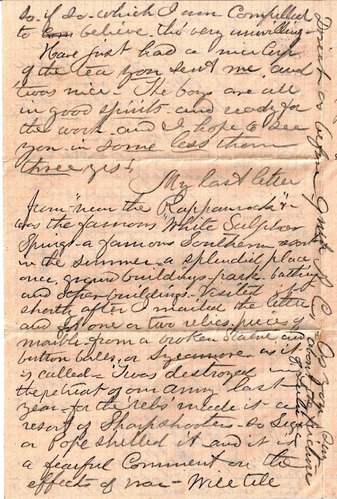 so, if so. which I am Compelled
to believe. tho very unwilling-
Have just had a nice cup
of the tea you sent me and
twas nice. The boys are all
in good spirits and ready for
the work and I hope to see
you in some less than
three yrs!
My last letter
from "near the Rappannock" &
was the famous White Sulpher
Springs - a famous Southern resort
in the summer - a splendid place
once, grand buildings - park - bathing
and other buildings - Visited it
shortly after I mailed the letter
and got one or two relics, pieces of
marble from a broken statue and
button balls, or Sycamore as it
is called - Twas destroyed in
the retreat of our army last
year - for the "rebs" made it a
resort of Sharpshooters - so
or Pope shelled it and it is
a fearful Comment on the
effects of war - Will tell